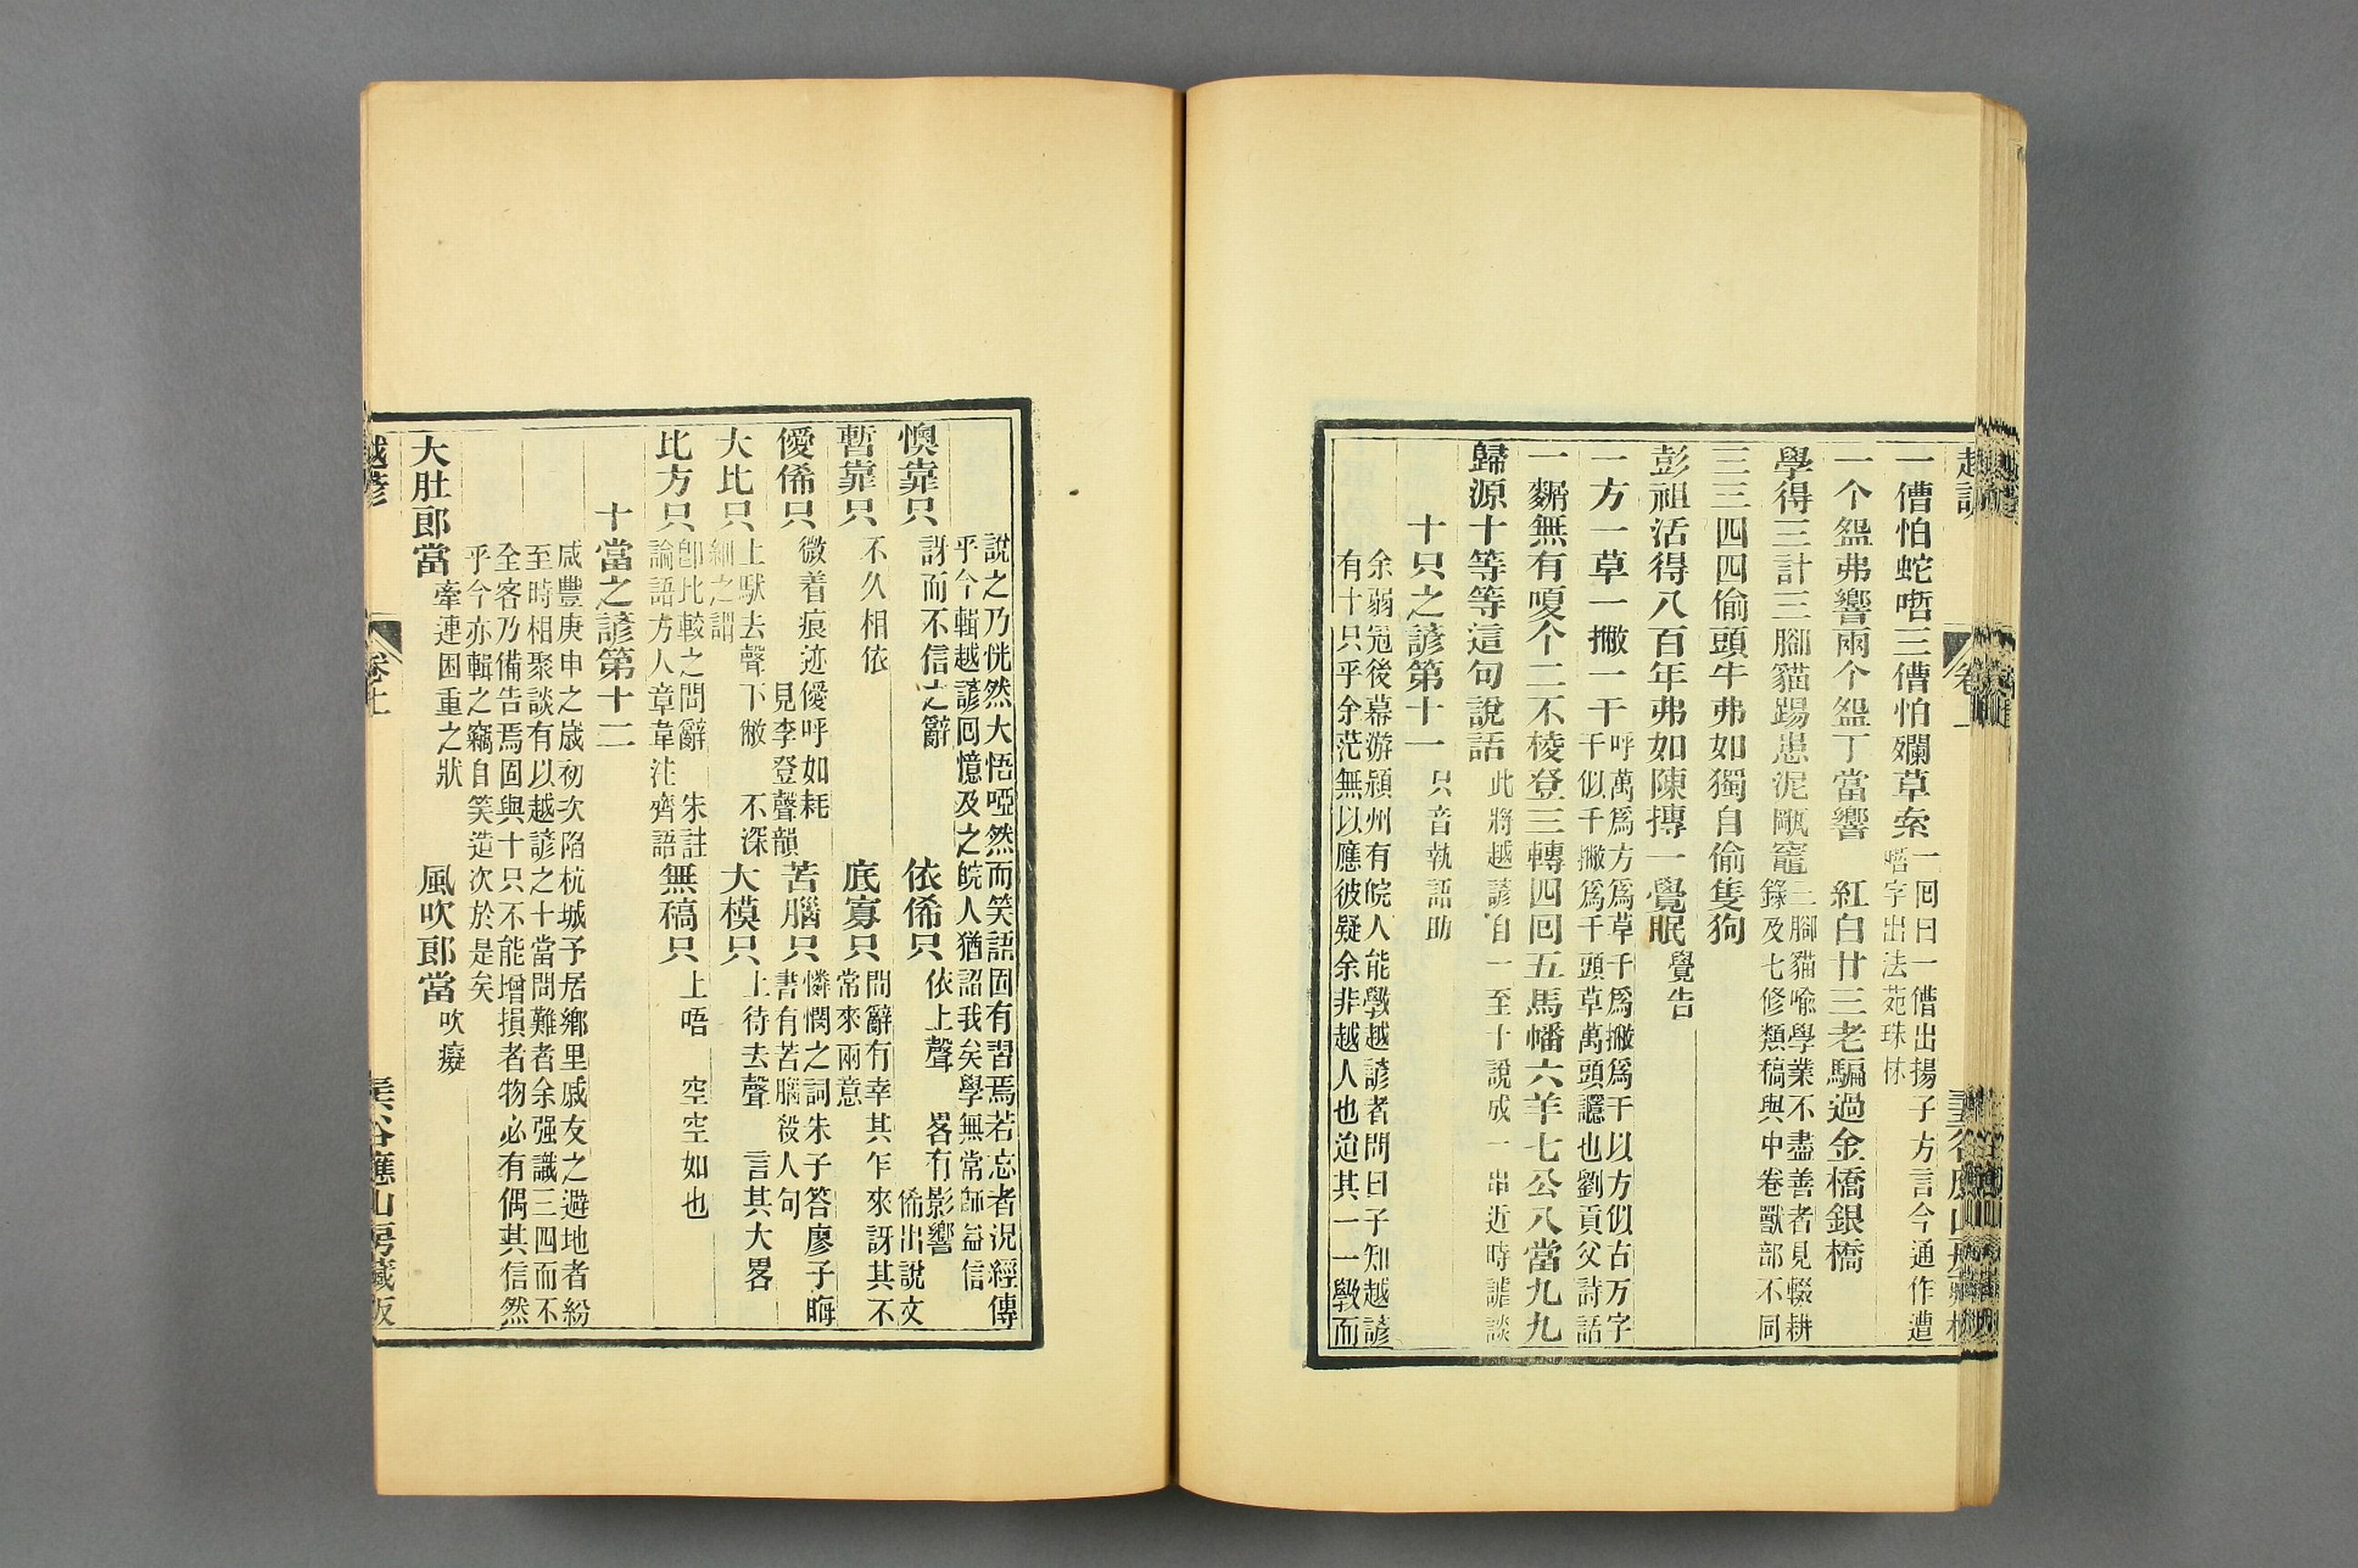 一傮怕蛇咶三傮怕斓草索 一囘曰一傮出揚子方言今通作遭
字出法苑珠林
一个㿻弗響兩个㿻丁當響 紅白廿三老騙過金橋銀橋
學得三計三腳貓踢患泥甌竈 三腳貓喻學業不盡善者見輟耕
錄及七修類稿與中卷獸部不同
三三四四偷頭牛弗如獨自偷隻狗
彭祖活得八百年弗如陳摶一覺眠 覺告
一方一草一撇一干 呼萬爲方爲草千爲撇爲干以方似古万字
千似千撇爲千頭草萬頭讔也劉貢父詩話
一㔃無有嗄个二不棱登三轉四回五馬幡六羊七公八當九九
歸源十等等這句說話 此將越諺自一至十說成一串近時譃談
十只之諺第十一 只音執語助
余弱冠後幕游潁州有皖人能斅越諺者問曰子知越諺
有十只乎余茫無以應彼疑余非越人也迫其一一斅而
說之乃恍然大悟啞然而笑語固有習焉若忘者況經傳
乎今輯越諺囘憶及之皖人猶詔我矣學無常師益信
懊靠只 訝而不信之辭 依俙只 依上聲 畧有影響
俙出說文
暫靠只 不久相依 底寡只 問辭有幸其乍來訝其不
常來兩意
僾俙只 微着痕迹僾呼如耗
見李登聲韻 苦腦只 憐憫之詞朱子答廖子晦
書有苦腦殺人句
大比只 上馱去聲下敝 不深
細之謂 大模只 上待去聲 言其大畧
比方只 卽比較之問辭 朱註
論語方人章韋注齊語 無稿只 上唔 空空如也
十當之諺第十二
咸豐庚申之歲初次陷杭城予居鄉里戚友之避地者紛
至時相聚談有以越諺之十當問難者余强識三四而不
全客乃備告焉固與十只不能增損者物必有偶其信然
乎今亦輯之竊自笑造次於是矣
大肚郎當 牽連困重之狀 風吹郎當 吹癡
越諺 卷上 谷應山房藏版